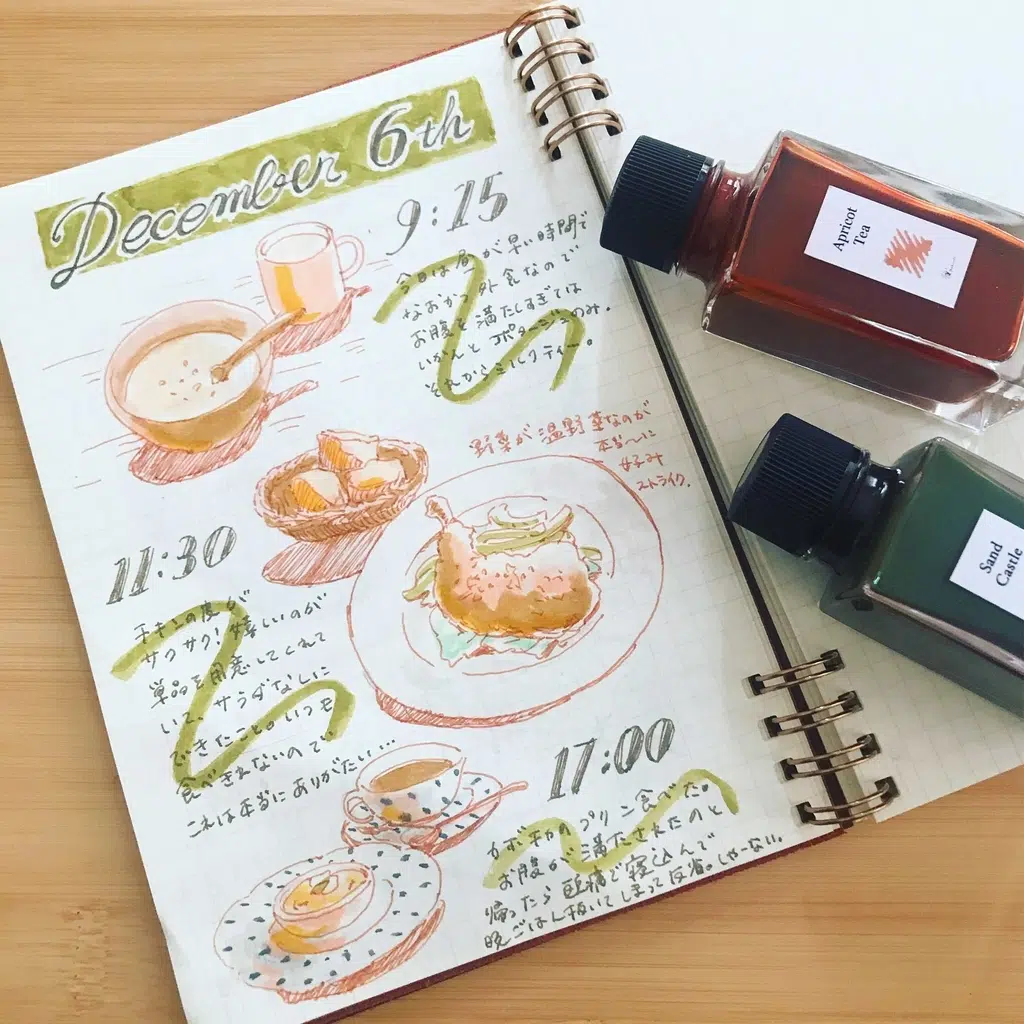 December 6th
9:15
今日は昼が早い時間で
なおかつ外食なので
お腹を満たしすぎては
いかんとポタージュのみ。
それからミルクティー。
野菜が温野菜なのが
本当〜に
好み
ストライク。
11:30
チキンの皮が
サクサク!嬉しいのが
単品を用意してくれて
いて、サラダなしに
できたこと。いつも
食べきれないので
これは本当にありがたい…
17:00
カボチャのプリン食べた。
お腹が満たされたのと
帰ったら頭痛で寝込んで
晩ごはん抜いてしまって反省。しゃーない。
Apricot
Tea
Sand
Castle